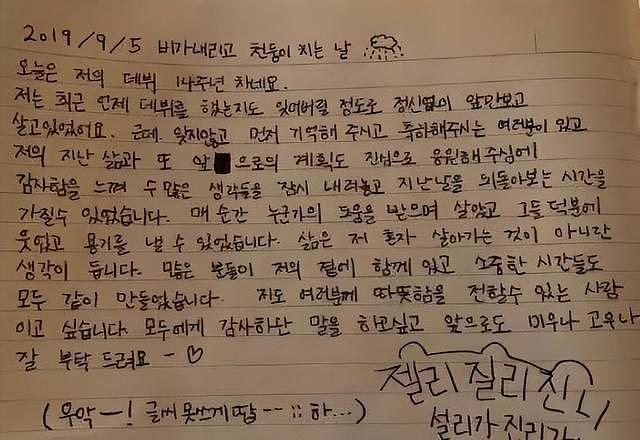 2019/9/5 비가내리고 천둥이 치는 날
오늘은 저의 데뷔 14주년 차네요.
저는 최근 언제 데뷔를 했는지도 잊어버릴 정도로 정신없이 앞만보고
살고있었어요. 근데 잊지않고 먼저 기억해 주시고 축하해주시는 여러분이 있고
저의 지난 삶과 또 앞으로의 계획도 진심으로 응원해 주심에
감사함을 느껴 수많은 생각들을 잠시 내려놓고 지난날을 되돌아보는 시간을
가질수 있었습니다. 매 순간 누군가의 도움을 받으며 살았고 그들 덕분에
웃었고 용기를 낼 수 있었습니다. 삶은 저 혼자 살아가는 것이 아니란
생각이 듭니다. 많은 분들이 저의 곁에 함께 있고 소중한 시간들도
모두 같이 만들었습니다. 저도 여러분께 따뜻함을 전할수 있는 사람
이고 싶습니다. 모두에게 감사하단 말을 하고싶고 앞으로도 미우나 고우나
잘 부탁 드려요 - ♡
젤리 질리 진리
(우악-! 글씨 못쓰게땁 -- ;; 하...)
설리가 진리가